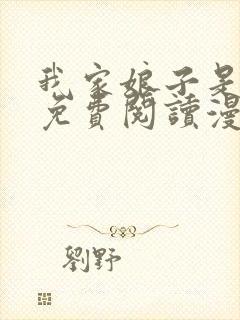 我家娘子是
免費閱讀漫
劉野